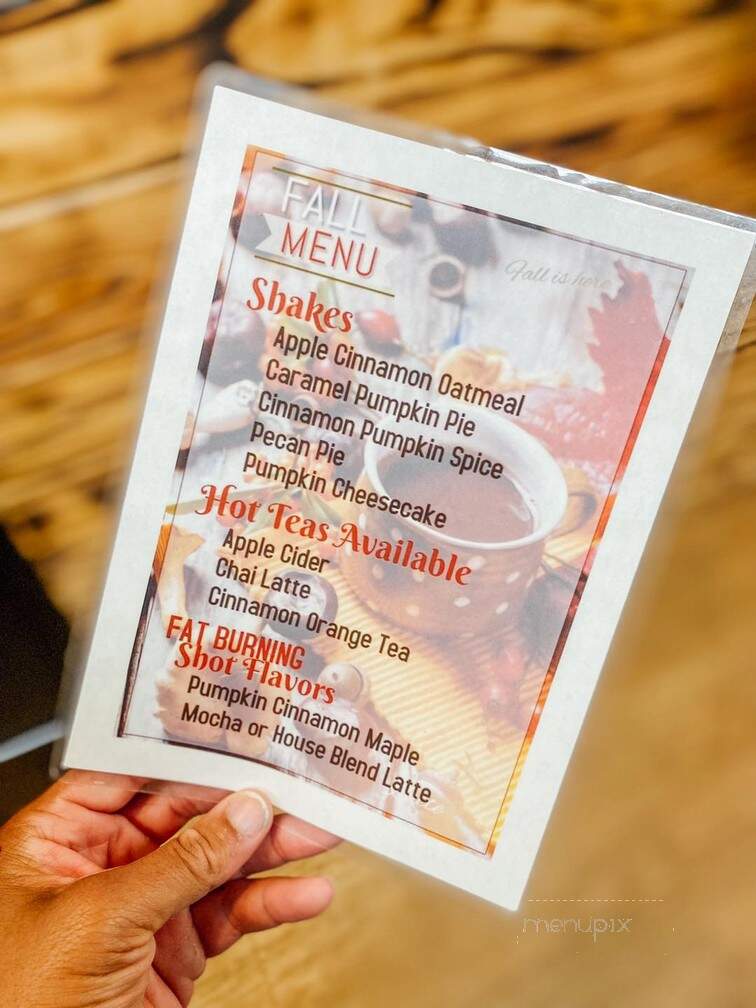 FALL
MENU
Fall is here
Shakes
Apple Cinnamon Oatmeal
Caramel Pumpkin Pie
Cinnamon Pumpkin Spice
Pecan Pie
Pumpkin Cheesecake
Hot Teas Available
Apple Cider
Chai Latte
Cinnamon Orange Tea
FAT BURNING
Shot Flavors
Pumpkin Cinnamon Maple
Mocha or House Blend Latte
menupix